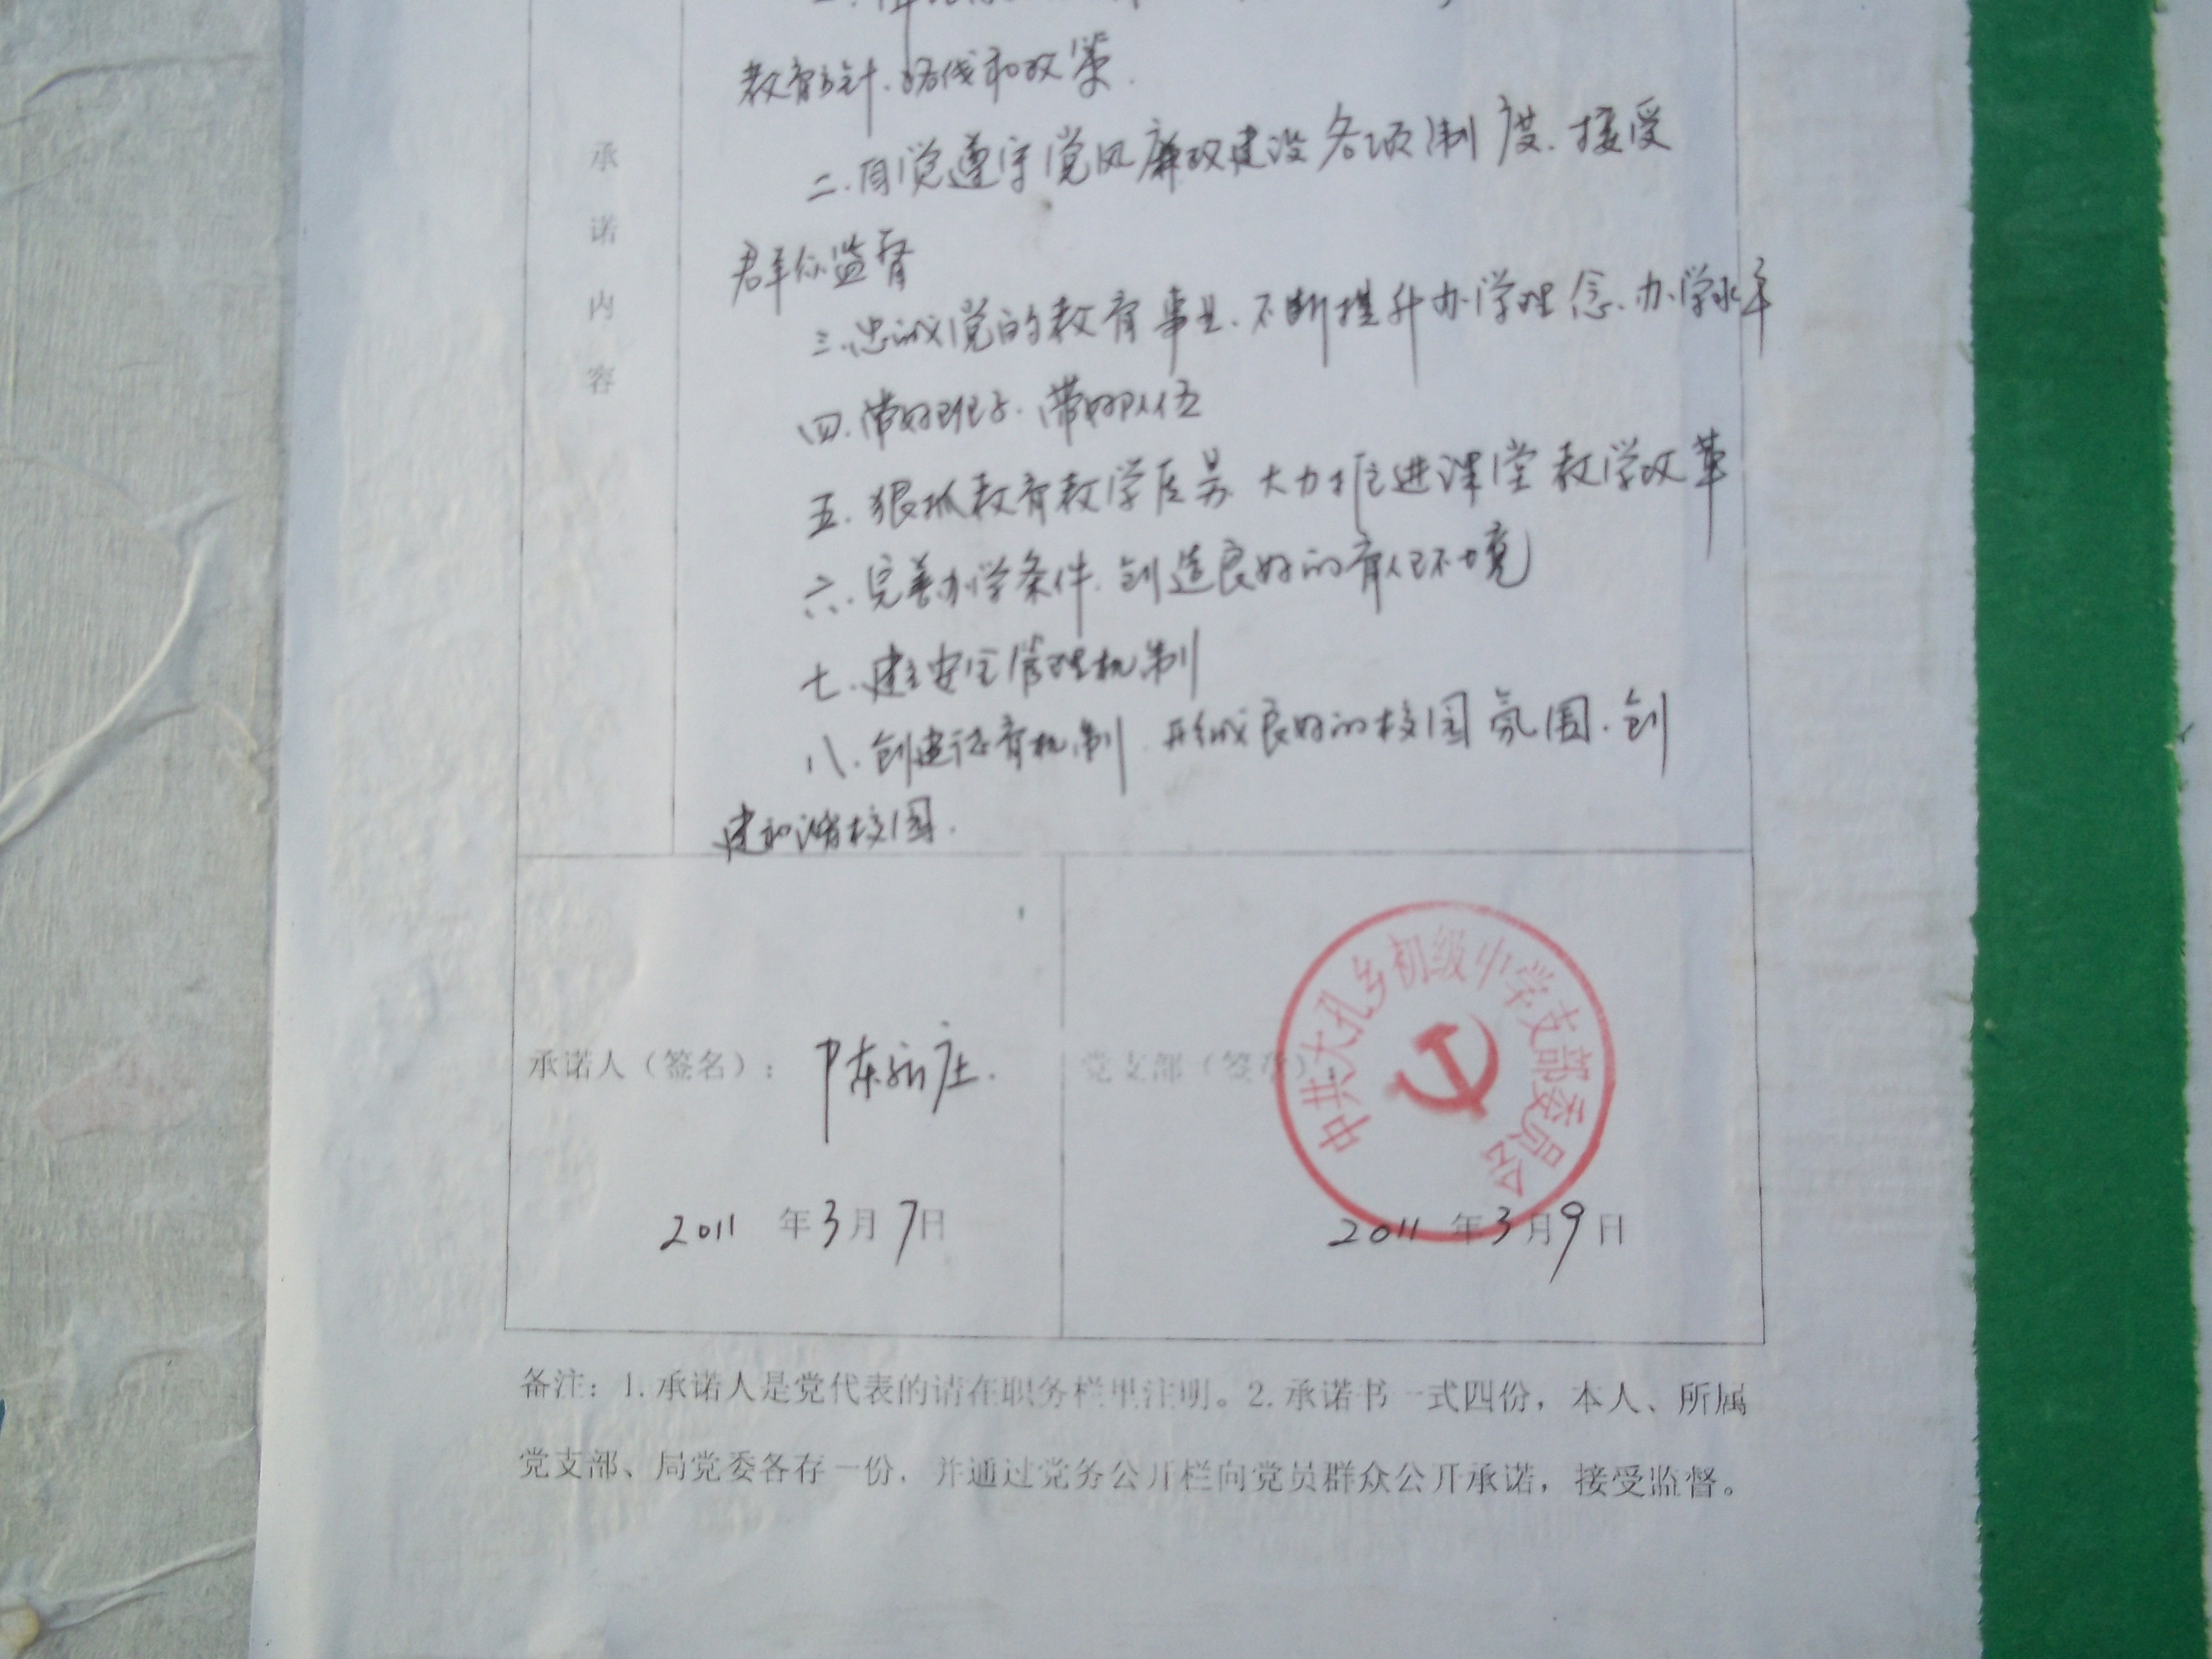 教育方针、路线和政策.
二.自觉遵守党风廉政建设各项制度.接受
群众监督
三.忠诚党的教育事业.不断提升办学理念.办学水平
四.带好班子.带好队伍
五.狠抓教育教学质量 大力推进课堂教学改革
六.完善办学条件.创造良好的育人环境
七.建立安全管理机制
八.创建德育机制 形成良好的校园氛围.创
建和谐校园.
承诺内容
承诺人（签名）：陈
2011 年 3 月 7 日
党支部（签章）
中共大孔乡初级中学支部委员会
2011 年 3 月 9 日
备注：1.承诺人是党代表的请在职务栏里注明。2.承诺书一式四份，本人、所属
党支部、局党委各存一份，并通过党务公开栏向党员群众公开承诺，接受监督。